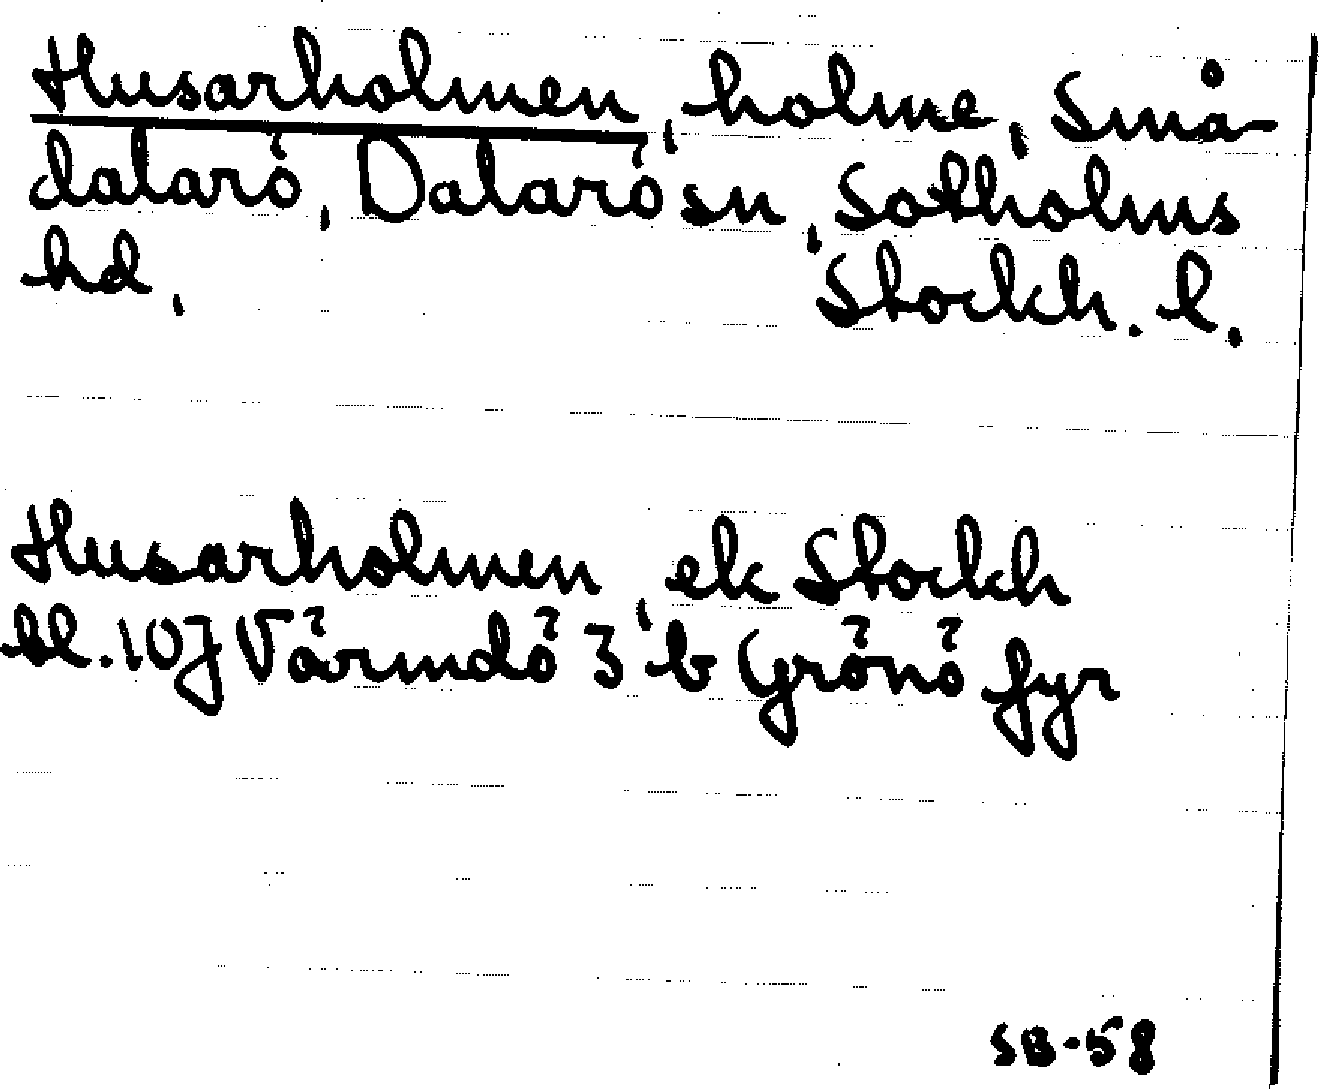 Husarholmen, holme, Små-
dalarö, Dalarö sn, Sotholms
hd, Stockh. l.
Husarholmen, ek Stockh
bl. 10J Värmdö 3 b Grönö fyr
SB-58